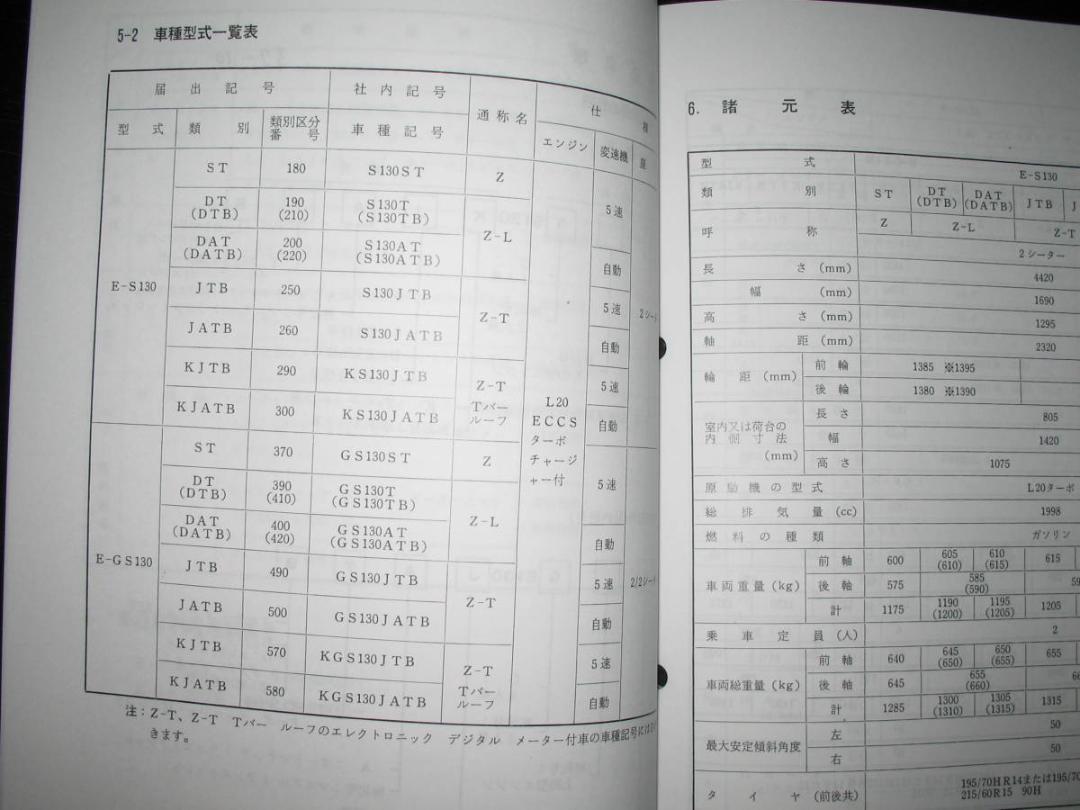 5-2 車種型式一覧表
届出記号 社内記号 通称名 仕様
型式 類別 類別区分番号 車種記号 エンジン 変速機
E-S130
ST 180 S130ST Z 5速
DT (DTB) 190 (210) S130T (S130TB) Z-L
DAT (DATB) 200 (220) S130AT (S130ATB) 自動
JTB 250 S130JTB Z-T 5速 2シー
JATB 260 S130JATB 自動
KJTB 290 KS130JTB Z-T Tバールーフ 5速
KJATB 300 KS130JATB 自動
L20 ECCS ターボチャージャー付
E-GS130
ST 370 GS130ST Z 5速
DT (DTB) 390 (410) GS130T (GS130TB) Z-L
DAT (DATB) 400 (420) GS130AT (GS130ATB) 自動
JTB 490 GS130JTB Z-T 5速 2/2シー
JATB 500 GS130JATB 自動
KJTB 570 KGS130JTB Z-T Tバールーフ 5速
KJATB 580 KGS130JATB 自動
注：Z-T、Z-T Tバー ルーフのエレクトロニック デジタル メーター付車の車種記号には
きます。
6. 諸元表
型式 E-S130
類別 ST DT (DTB) DAT (DATB) JTB J
呼称 Z Z-L Z-T
2シーター
長さ (mm) 4420
幅 (mm) 1690
高さ (mm) 1295
軸距 (mm) 2320
輪距 (mm) 前輪 1385 ※1395
後輪 1380 ※1390
室内又は荷台の内側寸法 (mm) 長さ 805
幅 1420
高さ 1075
原動機の型式 L20ターボ
総排気量 (cc) 1998
燃料の種類 ガソリン
車両重量 (kg) 前軸 600 605 (610) 610 (615) 615
後軸 575 585 (590) 59
計 1175 1190 (1200) 1195 (1205) 1205
乗車定員 (人) 2
車両総重量 (kg) 前軸 640 645 (650) 650 (655) 655
後軸 645 655 (660) 66
計 1285 1300 (1310) 1305 (1315) 1315
最大安定傾斜角度 左 50
右 50
タイヤ (前後共) 195/70HR14または195/70
215/60R15 90H